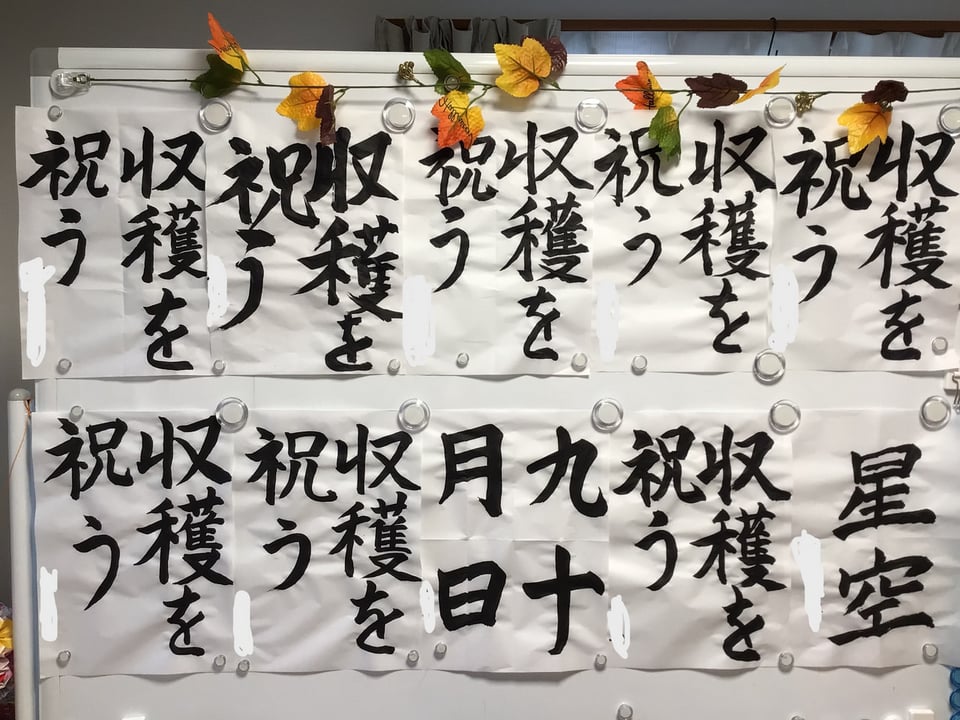 収穫を
祝う
収穫を
祝う
収穫を
祝う
収穫を
祝う
収穫を
祝う
星空
収穫を
祝う
九十
月日
収穫を
祝う
収穫を
祝う